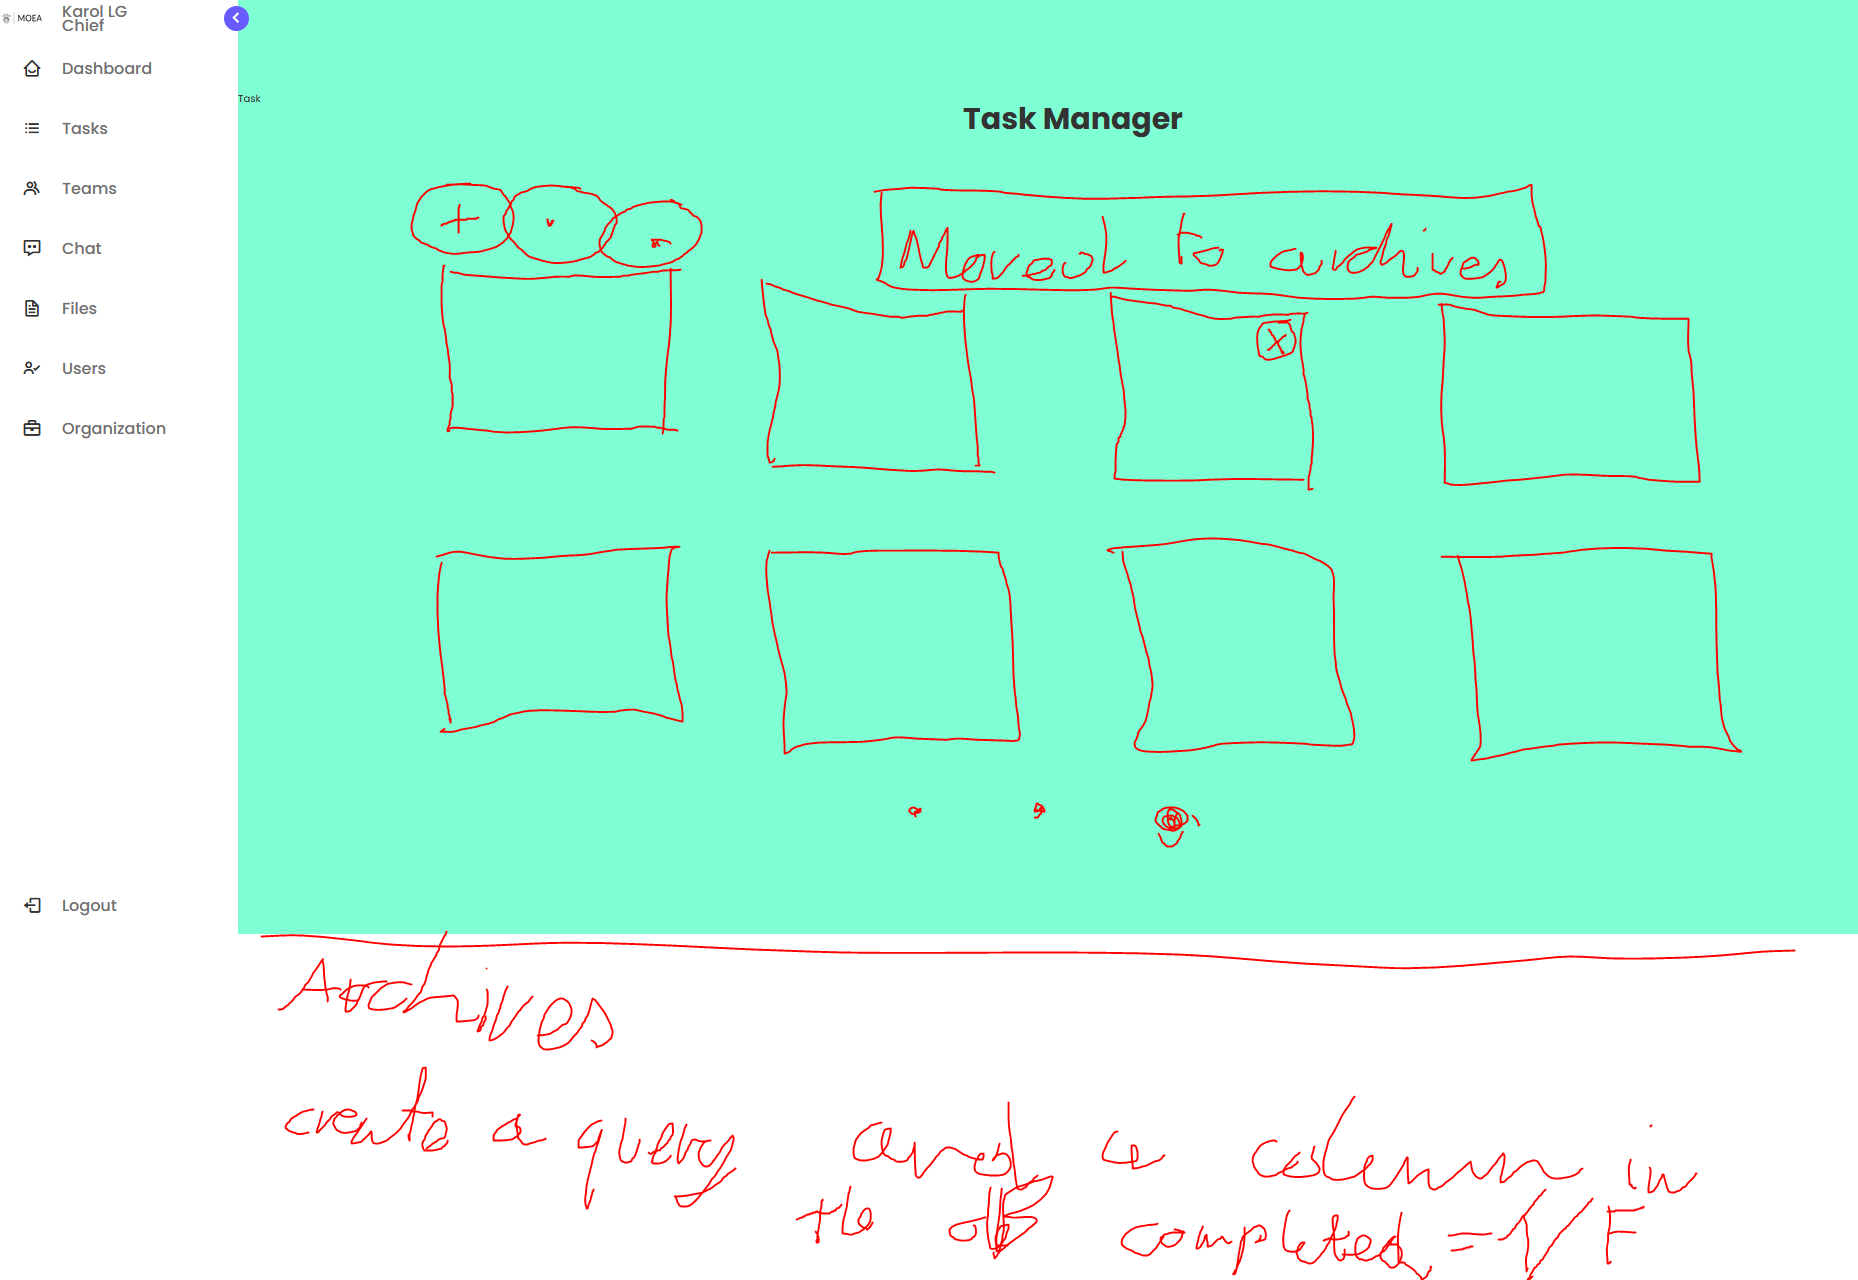 MOEA
Karol LG
Chief
Dashboard
Tasks
Teams
Chat
Files
Users
Organization
Logout
Task
Task Manager
+
Moved to archives
X
Archives
create a query and a column in
the db completed = 1/F